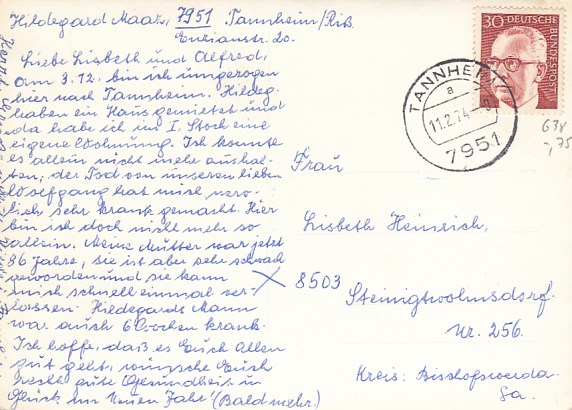 Hildegard Maaz, 7951 Tannheim/Riß
Enzianstr. 20.
Liebe Lisbeth und Alfred,
am 3.12. bin ich umgezogen
hier nach Tannheim. Hildeg.
haben ein Haus gemietet und
da habe ich im I. Stock eine
eigene Wohnung. Ich konnte
es allein nicht mehr aushal-
ten, der Tod von unseren lieben
Wolfgang hat mich nerv-
lich sehr krank gemacht. Hier
bin ich doch nicht mehr so
allein. Meine Mutter war jetzt
86 Jahre, sie ist aber sehr schwach
geworden und sie kann
mich schnell einmal ver-
lassen. Hildegards Mann
war auch 6 Wochen krank.
Ich hoffe, daß es Euch Allen
gut geht, wünsche Euch
recht gute Gesundheit u.
Glück im Neuen Jahr! (Bald mehr.)
30
DEUTSCHE
BUNDESPOST
TANNHEIM
a
11.2.74
7951
638
-,75
Frau
Lisbeth Heinrich,
X 8503
Steinigtwolmsdorf.
Nr. 256.
Kreis: Bischofswerda
Sa.